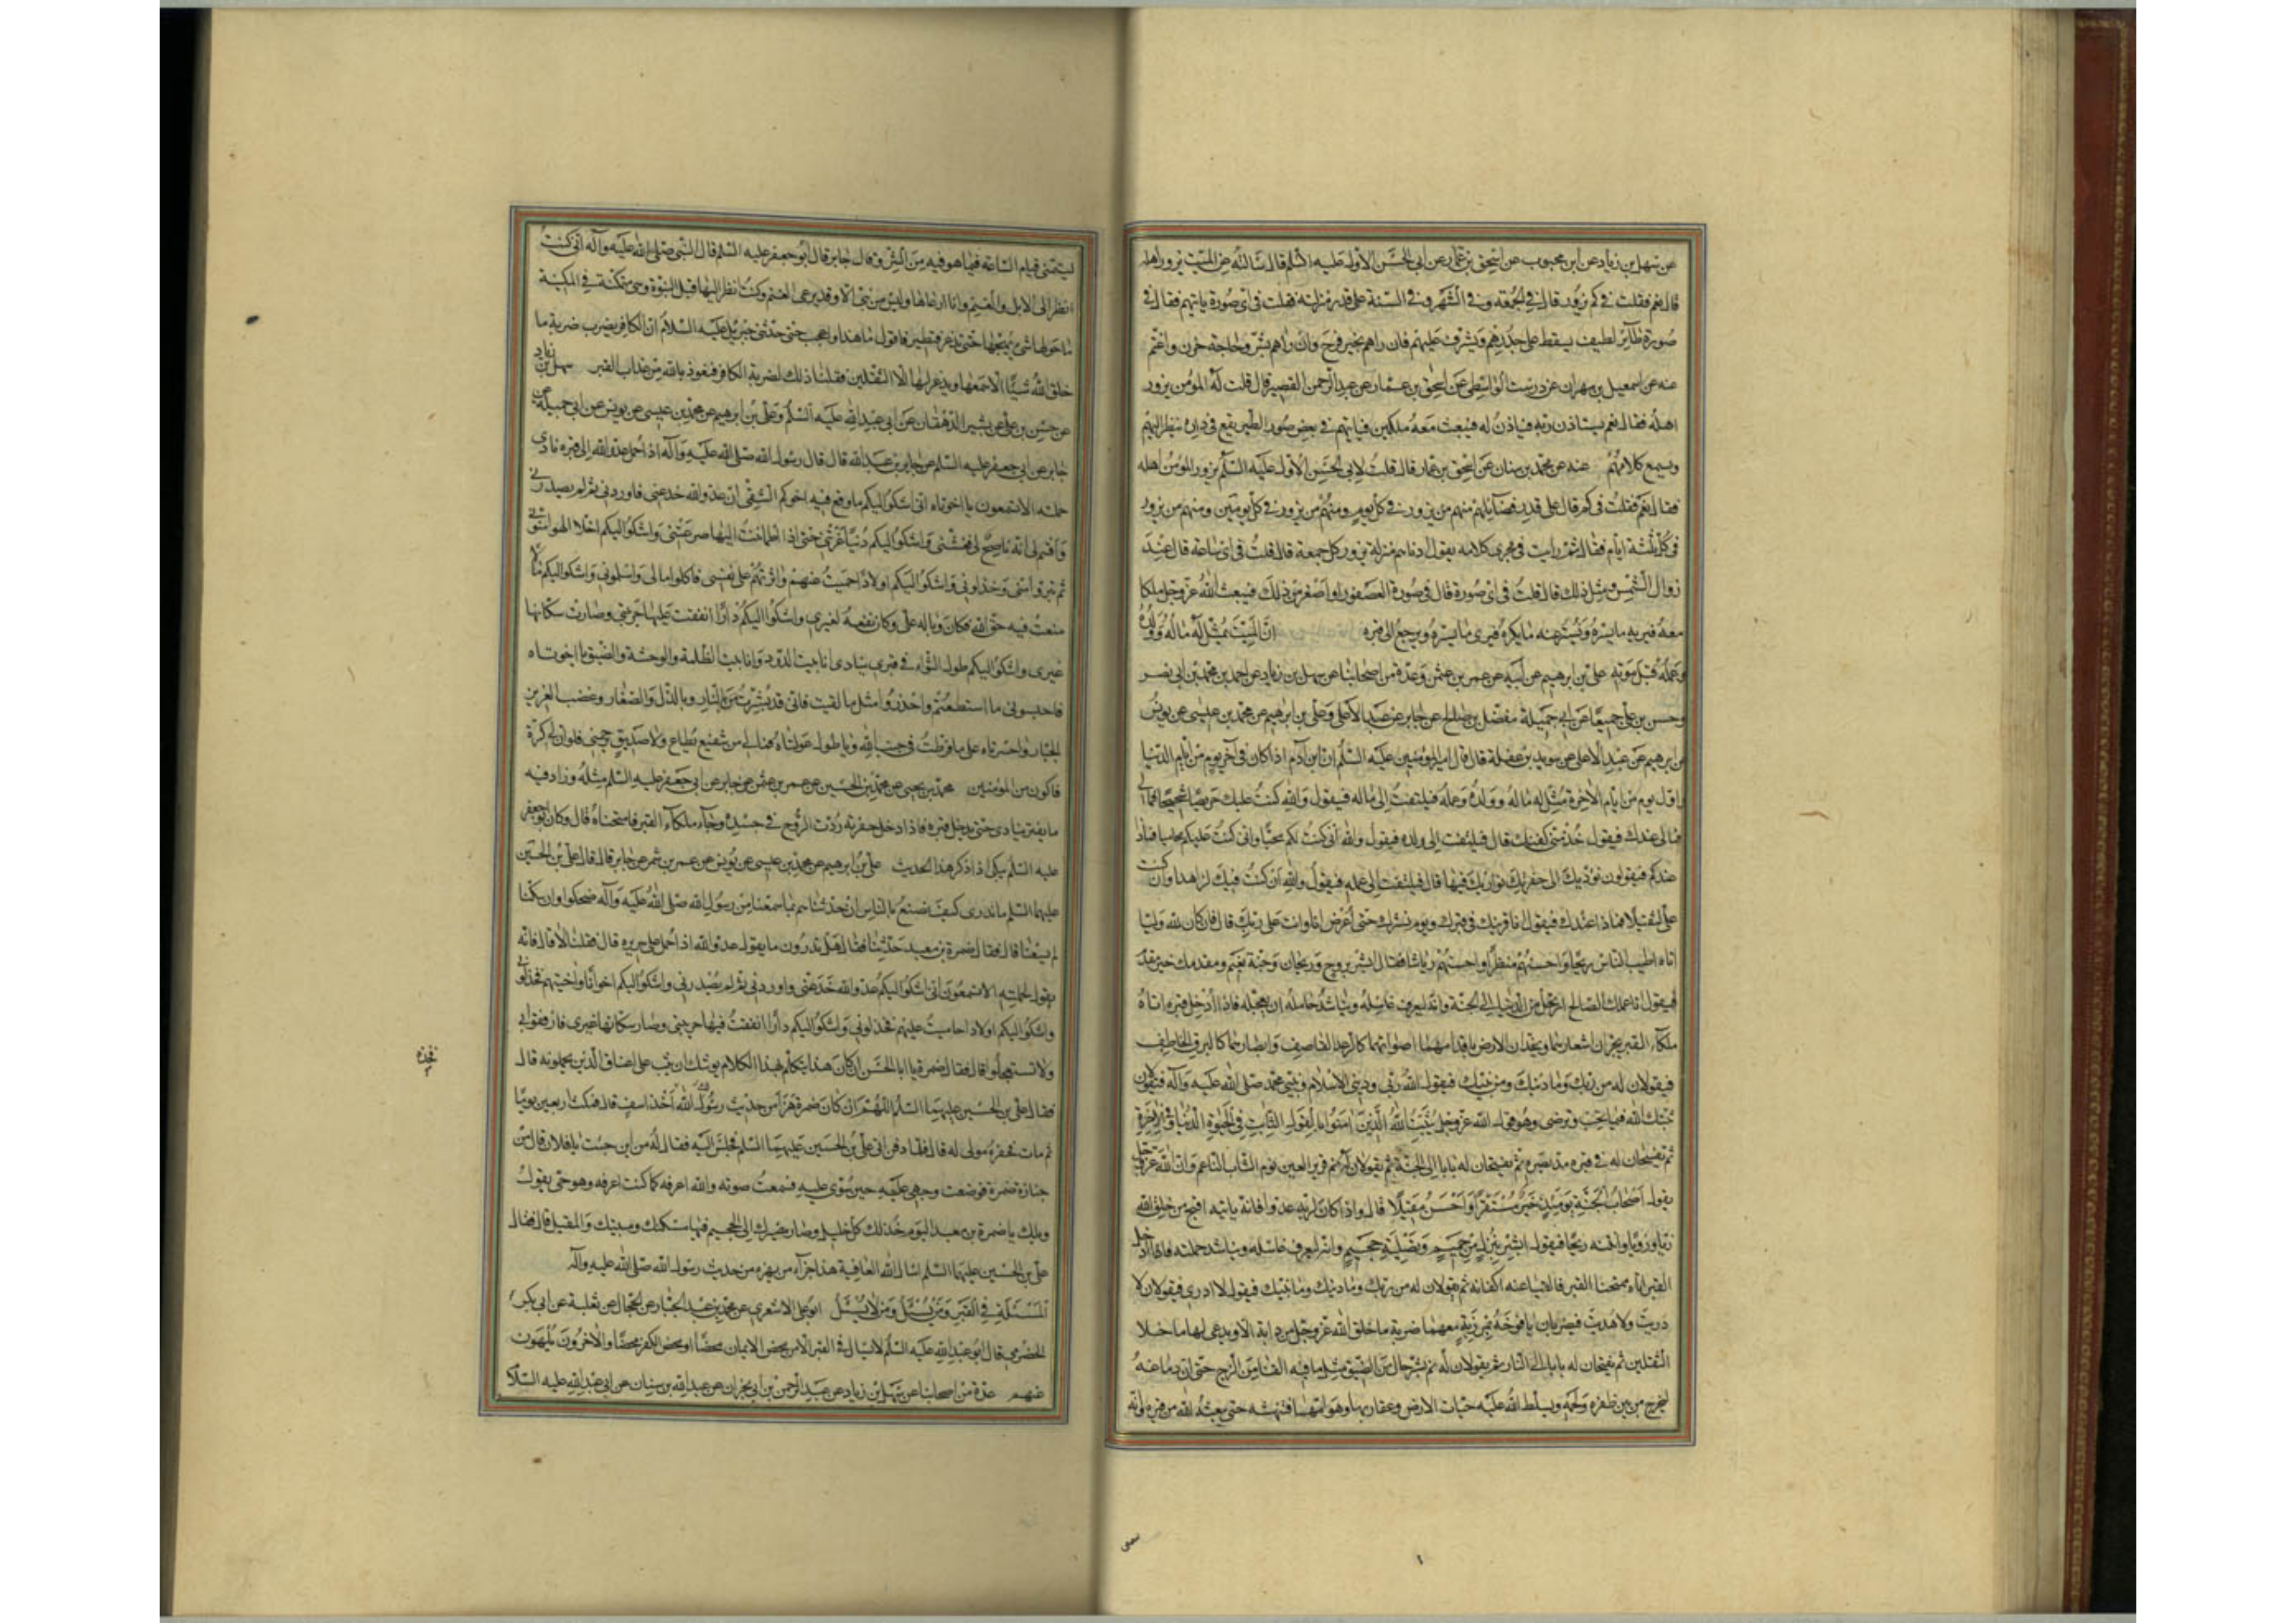 عن سهل بن زياد عن ابن محبوب عن اسحق بن عمار عن ابى الحسن الاول عليه السلم قال سالته عن الميت يزور اهله
قال نعم فقلت فى كم يزور قال فى الجمعة وفى الشهر وفى السنة على قدر منزلته فقلت فى اى صورة ياتيهم فقال فى
صورة طائر لطيف يسقط على جدرهم ويشرف عليهم فان راهم بخير فرح وان راهم بشر وحاجة حزن واغتم
عنه عن اسمعيل بن مهران عن درست الواسطى عن اسحق بن عمار عن عبد الرحمن القصير قال قلت له المؤمن يزور
اهله فقال نعم يستاذن ربه فياذن له فيبعث معه ملكين فياتيهم فى بعض صور الطير يقع فى داره ينظر اليهم
ويسمع كلامهم عنه عن محمد بن سنان عن اسحق بن عمار قال قلت لابى الحسن الاول عليه السلم يزور المؤمن اهله
فقال نعم فقلت فى كم قال على قدر فضائلهم منهم من يزور فى كل يوم ومنهم من يزور فى كل يومين ومنهم من يزور
فى كل ثلثة ايام قال ثم رايت فى مجرى كلامه يقول ادناهم منزلة يزور كل جمعة قال قلت فى اى ساعة قال عند
زوال الشمس ومثل ذلك قال قلت فى اى صورة قال فى صورة العصفور او اصغر من ذلك فيبعث الله عز وجل ملكا
معه فيريه ما يسره ويستر عنه ما يكره فيرى ما يسره ويرجع الى قره ان الميت يمثل له ماله وولده
وعمله قبل موته على بن ابرهيم عن ابيه عن عمر بن عثمن وعدة من اصحابنا عن سهل بن زياد عن احمد بن محمد بن ابى نصر
وحسن بن على جميعا عن ابى جميلة مفضل بن صالح عن جابر عن عبد الاعلى وعلى بن ابرهيم عن محمد بن عيسى عن يونس
عن ابرهيم عن عبد الاعلى عن سويد بن غفلة قال قال امير المؤمنين عليه السلم ان ابن آدم اذا كان فى آخر يوم من ايام الدنيا
واول يوم من ايام الآخرة مثل له ماله وولده وعمله فيلتفت الى ماله فيقول والله انى كنت عليك حريصا شحيحا فما
لى عندك فيقول خذ منى كفنك قال فيلتفت الى ولده فيقول والله انى كنت لكم محبا وانى كنت عليكم محاميا فماذا
عندكم فيقولون نؤديك الى حفرتك نواريك فيها قال فيلتفت الى عمله فيقول والله انى كنت فيك لزاهدا وان كنت
على لثقيلا فماذا عندك فيقول انا قرينك فى قبرك ويوم نشرك حتى اعرض انا وانت على ربك قال فان كان لله وليا
اتاه اطيب الناس ريحا واحسنهم منظرا واحسنهم رياشا فقال ابشر بروح وريحان وجنة نعيم ومقدمك خير مقدم
فيقول انا عملك الصالح ارتحل من الدنيا الى الجنة وانه ليعرف غاسله ويناشد حامله ان يعجله فاذا ادخل قبره اتاه
ملكا القبر يجران اشعارهما ويخدان الارض باقدامهما اصواتهما كالرعد القاصف وابصارهما كالبرق الخاطف
فيقولان له من ربك وما دينك ومن نبيك فيقول الله ربى ودينى الاسلام ونبيى محمد صلى الله عليه وآله فيقولان
ثبتك الله فيما تحب وترضى وهو قول الله عز وجل يثبت الله الذين آمنوا بالقول الثابت فى الحيوة الدنيا وفى الآخرة
ثم يفسحان له فى قبره مد بصره ثم يفتحان له بابا الى الجنة ثم يقولان له نم قرير العين نوم الشاب الناعم فان الله عز وجل
يقول اصحاب الجنة يومئذ خير مستقرا واحسن مقيلا قال واذا كان لربه عدوا فانه ياتيه اقبح من خلق الله
زيا ورويا وانتنه ريحا فيقول ابشر بنزل من حميم وتصلية جحيم وانه ليعرف غاسله ويناشد حملته فاذا ادخل
القبر اتاه ممتحنا القبر فالقيا عنه اكفانه ثم يقولان له من ربك وما دينك وما نبيك فيقول لا ادرى فيقولان لا
دريت ولا هديت فيضربان يافوخه بمرزبة معهما ضربة ما خلق الله عز وجل من دابة الا ويذعر لها ما خلا
الثقلين ثم يفتحان له بابا الى النار ثم يقولان له نم بشر حال من الضيق مثل ما فيه القنا من الزج حتى ان دماغه
ليخرج من بين ظفره ولحمه ويسلط الله عليه حيات الارض وعقاربها وهوامها فتنهشه حتى يبعثه الله من قبره وانه
ليتمنى قيام الساعة فيما هو فيه من الشر وقال جابر قال ابو جعفر عليه السلم قال النبى صلى الله عليه وآله انى كنت
انظر الى الابل والغنم وانا ارعاها وليس من نبى الا وقد رعى الغنم وكنت انظر اليها قبل النبوة وهى متمكنة فى المكينة
ما حولها شئ يهيجها حتى تذعر فتطير فاقول ما هذا واعجب حتى حدثنى جبرئيل عليه السلام ان الكافر يضرب ضربة ما
خلق الله شيئا الا سمعها ويذعر لها الا الثقلين فقلنا ذلك لضربة الكافر فنعوذ بالله من عذاب القبر سهل بن زياد
عن حسن بن على عن بشير الدهقان عن ابى عبد الله عليه السلم وعلى بن ابرهيم عن محمد بن عيسى عن يونس عن ابى جميلة عن
جابر عن ابى جعفر عليه السلم عن جابر بن عبد الله قال قال رسول الله صلى الله عليه وآله اذا حمل عدو الله الى قبره نادى
حملته الا تسمعون يا اخوتاه انى اشكو اليكم ما وقع فيه اخوكم الشقى ان عدو الله خدعنى فاوردنى ثم لم يصدرنى
واقسم لى انه ناصح لى فغشنى واشكو اليكم دنيا غرتنى حتى اذا اطمانت اليها صرعتنى واشكو اليكم اخلاء الهوى منونى
ثم تبرؤا منى وخذلونى واشكو اليكم اولادا حميت عنهم واثرتهم على نفسى فاكلوا مالى واسلمونى واشكو اليكم مالا
منعت فيه حق الله فكان وباله على وكان نفعه لغيرى واشكو اليكم دارا انفقت عليها حريبتى وصارت سكانها
غيرى واشكو اليكم طول الثواء فى قبرى ينادى انا بيت الدود وانا بيت الظلمة والوحشة والضيق يا اخوتاه
فاحبسونى ما استطعتم واحذروا مثل ما لقيت فانى قد بشرت بالنار وبالذل والصغار وغضب العزيز
الجبار واحسرتاه على ما فرطت فى جنب الله ويا طول عولتاه فمالى من شفيع يطاع ولا صديق يرحمنى فلو ان لى كرة
فاكون من المؤمنين محمد بن يحيى عن محمد بن الحسين عن عمر بن عثمن عن جابر عن ابى جعفر عليه السلم مثله وزاد فيه
ما يفتر ينادى حتى يدخل قبره فاذا ادخل حفرته ردت الروح فى جسده وجاء ملكا القبر فامتحناه قال وكان ابو جعفر
عليه السلم يبكى اذا ذكر هذا الحديث على بن ابرهيم عن محمد بن عيسى عن يونس عن عمر بن شمر عن جابر قال قال على بن الحسين
عليهما السلم ما ندرى كيف نصنع بالناس ان حدثناهم بما سمعنا من رسول الله صلى الله عليه وآله ضحكوا وان سكتنا
لم يسعنا قال فقال ضمرة بن معبد حدثنا فقال هل تدرون ما يقول عدو الله اذا حمل على سريره قال فقلنا لا قال فانه
يقول لحملته الا تسمعون انى اشكو اليكم عدو الله خدعنى واوردنى ثم لم يصدرنى واشكو اليكم اخوانا واخيتهم فخذلونى
واشكو اليكم اولادا حاميت عليهم فخذلونى واشكو اليكم دارا انفقت فيها حريبتى وصار سكانها غيرى فارفقوا بى
ولا تستعجلوا قال فقال ضمرة يا ابا الحسن ان كان هذا يتكلم بهذا الكلام يوشك ان يثب على اعناق الذين يحملونه قال
فقال على بن الحسين عليهما السلم اللهم ان كان ضمرة هزأ من حديث رسول الله فخذه اخذ اسف قال فمكث اربعين يوما
ثم مات فحضره مولى له قال فلما دفن اتى على بن الحسين عليهما السلم فجلس اليه فقال له من اين جئت يا فلان قال من
جنازة ضمرة فوضعت وجهى عليه حين سوى عليه فسمعت صوته والله اعرفه كما كنت اعرفه وهو حى يقول
ويلك يا ضمرة بن معبد اليوم خذلك كل خليل وصار مصيرك الى الجحيم فيها مسكنك ومبيتك والمقيل قال فقال
على بن الحسين عليهما السلم اسال الله العافية هذا جزاء من يهزء من حديث رسول الله صلى الله عليه وآله
المسئلة فى القبر ومن يسئل ومن لا يسئل ابو على الاشعرى عن محمد بن عبد الجبار عن الحجال عن ثعلبة عن ابى بكر
الحضرمى قال ابو عبد الله عليه السلم لا يسال فى القبر الا من محض الايمان محضا او محض الكفر محضا والآخرون يلهون
عنهم عدة من اصحابنا عن سهل بن زياد عن عبد الرحمن بن ابى نجران عن عبد الله بن سنان عن ابى عبد الله عليه السلم